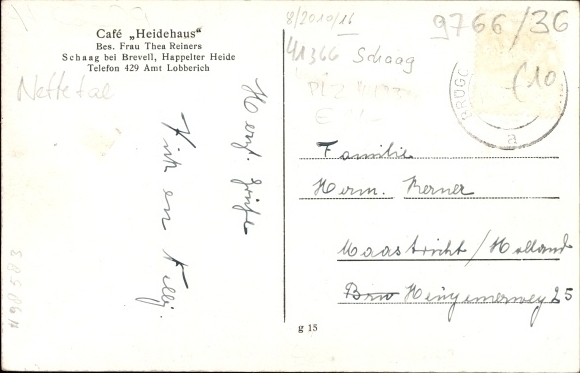 Café „Heidehaus"
Bes. Frau Thea Reiners
Schaag bei Breyell, Happelter Heide
Telefon 429 Amt Lobberich
Nettetal
8/2010/16
9766/36
41366 Schaag
PLZ
(10
BRÜGG
a
Herzl. Grüße
Familie
Herm. Kerner
Maastricht/Holland
25
g 15
498583